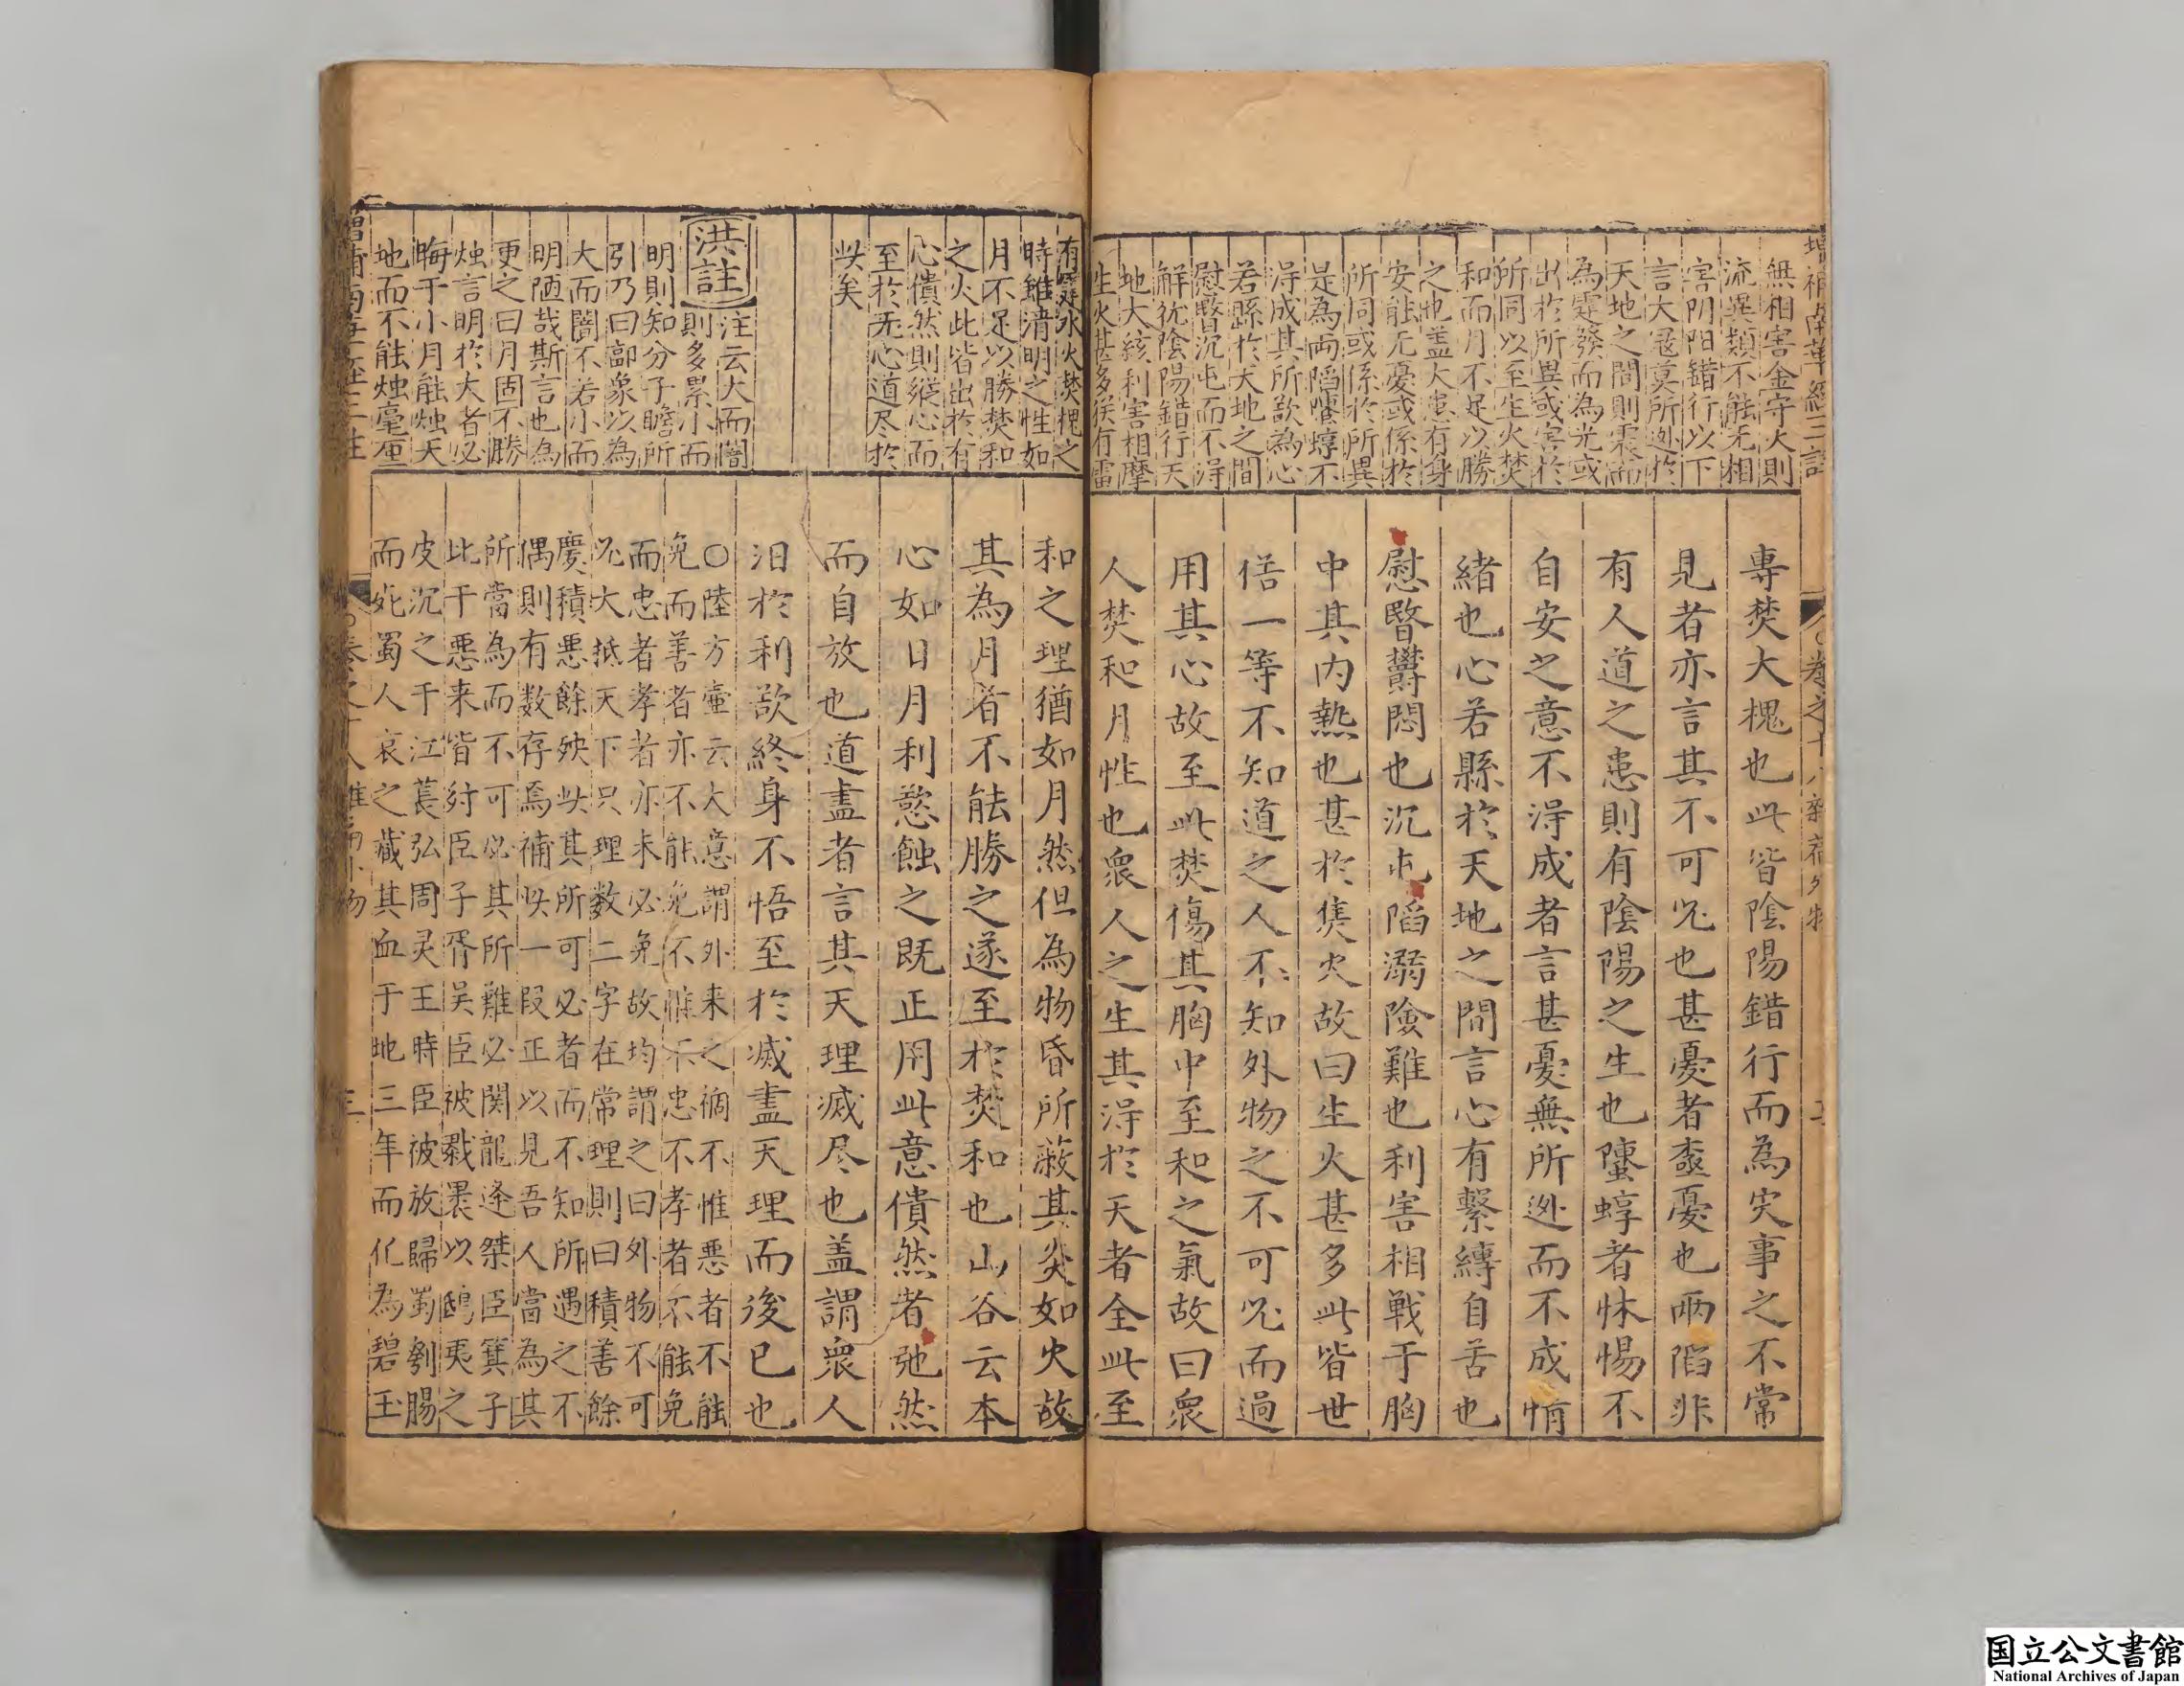 無相害金守火則
流異類不能无相
害阴阳錯行以下
言大寇莫所迯於
天地之間則霖而
為霆發而為光或
出於所異或害於
所同以至生火焚
和而月不足以勝
之也盖大患有身
安能无憂或係於
所同或係於所異
是為兩陷螴蜳不
得成其所欲為心
若縣於天地之間
慰暋沉屯而不得
解犹陰陽錯行天
地大絃利害相摩
生火甚多矦有雷
專焚大槐也此皆陰陽錯行而為灾事之不常
見者亦言其不可必也甚憂者亟憂也兩陷非
有人道之患則有陰陽之生也螴蜳者怵惕不
自安之意不得成者言甚憂無所迯而不成悄
緒也心若縣於天地之間言心有繫縳自苦也
慰暋欝悶也沉屯陷溺險難也利害相戰于胸
中其内熱也甚於焦火故曰生火甚多此皆世
俗一等不知道之人不知外物之不可必而過
用其心故至此焚傷其胸中至和之氣故曰衆
人焚和月性也衆人之生其得於天者全此至
有雷水火焚槐之
時雖清明之性如
月不足以勝焚和
之火此皆出於有
心僓然則縱心而
至於无心道尽於
此矣
洪註
注云大而闇
則多累小而
明則知分子瞻所
引乃曰郭象以為
大而闇不若小而
明陋哉斯言也為
更之曰月固不勝
烛言明於大者必
晦于小月能烛天
地而不能烛毫厘
和之理猶如月然但為物昏所蔽其炎如火故
其為月者不能勝之遂至於焚和也山谷云本
心如日月利慾蝕之既正用此意僓然者弛然
而自放也道盡者言其天理滅尽也盖謂衆人
汨於利欲終身不悟至於滅盡天理而後已也
○陸方壷云大意謂外来之禍不惟悪者不能
免而善者亦不能免不惟不忠不孝者不能免
而忠者孝者亦未必免故均謂之曰外物不可
必大抵天下只理数二字在常理則曰積善餘
慶積悪餘殃此其所可必者而不知所遇之不
偶則有数存焉補此一段正以見吾人當為其
所當為而不可必其所難必関龍逄桀臣箕子
比干悪来皆紂臣子胥吴臣被戮褁以鴟夷之
皮沉之于江萇弘周灵王時臣被放歸蜀刳腸
而死蜀人哀之藏其血于地三年而化為碧玉
増補南華經三註
卷之十八雜篇外物
三
国立公文書館
National Archives of Japan